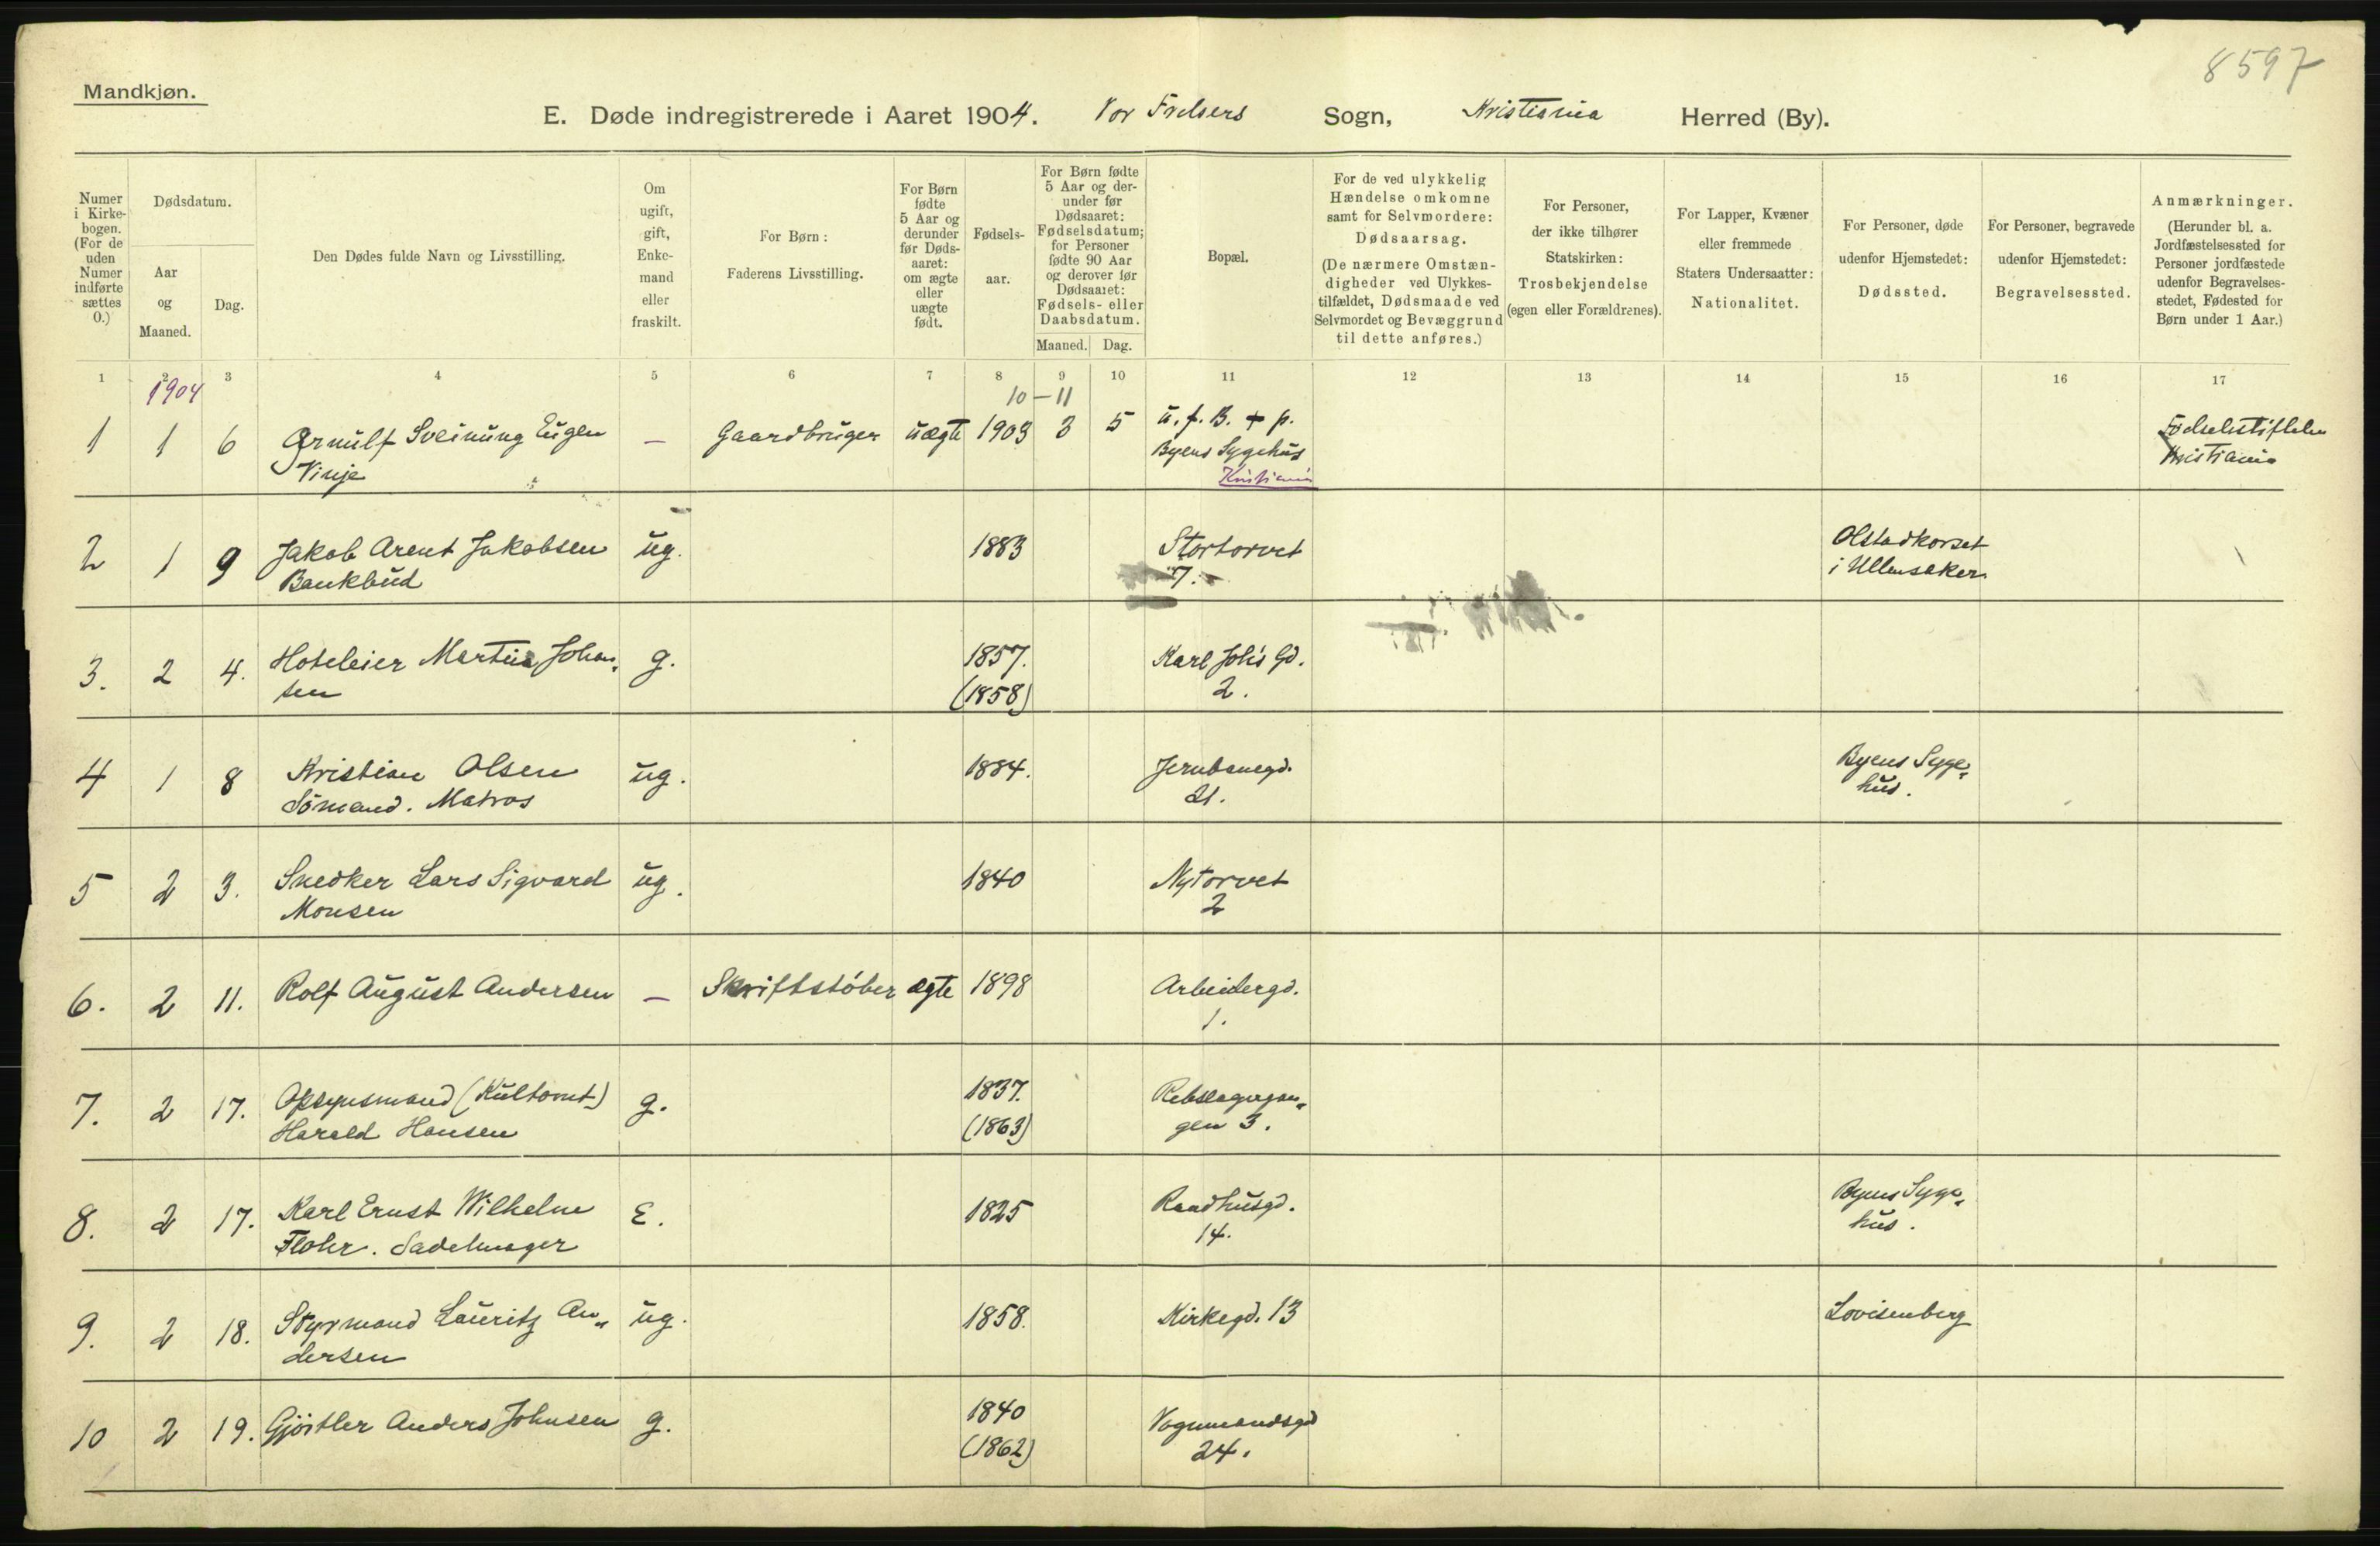 8597
Mandkjøn.
E. Døde indregistrerede i Aaret 1904. Vor Frelsers Sogn, Kristiania Herred (By).
Numer i Kirkebogen. (For de uden Numer indførte sættes 0.)
Dødsdatum.
Aar og Maaned.
Dag.
Den Dødes fulde Navn og Livsstilling.
Om ugift, gift, Enkemand eller fraskilt.
For Børn: Faderens Livsstilling.
For Børn fødte 5 Aar og derunder før Dødsaaret: om ægte eller uægte født.
Fødselsaar.
For Børn fødte 5 Aar og derunder før Dødsaaret: Fødselsdatum; for Personer fødte 90 Aar og derover før Dødsaaret: Fødsels- eller Daabsdatum.
Maaned. Dag.
Bopæl.
For de ved ulykkelig Hændelse omkomne samt for Selvmordere: Dødsaarsag. (De nærmere Omstændigheder ved Ulykkestilfældet, Dødsmaade ved Selvmordet og Bevæggrund til dette anføres.)
For Personer, der ikke tilhører Statskirken: Trosbekjendelse (egen eller Forældrenes).
For Lapper, Kvæner eller fremmede Staters Undersaatter: Nationalitet.
For Personer, døde udenfor Hjemstedet: Dødssted.
For Personer, begravede udenfor Hjemstedet: Begravelsessted.
Anmærkninger. (Herunder bl. a. Jordfæstelsessted for Personer jordfæstede udenfor Begravelsesstedet, Fødested for Børn under 1 Aar.)
1 2 3 4 5 6 7 8 9 10 11 12 13 14 15 16 17
1904 10-11
1 1 6 Arnulf Sveinung Eugen — Gaardbruger uægte 1903 3 5 u. f. B. + p.
Vinje Byens Sygehus
Kristiania
Fødselsstiftelsen
Kristiania
2 1 9 Jakob Arent Jakobsen ug. 1883 Stortorvet Olstadkorset
Bankbud 7. i Ullensaker
3. 2 4. Hoteleier Martin Johan- g. 1857. Karl Joh's Gd.
sen (1858) 2.
4 1 8 Kristian Olsen ug. 1884. Jernbanegd. Byens Syge-
Sømand. Matros 21. hus.
5 2 3. Snedker Lars Sigvard ug. 1840 Nytorvet
Monsen 2
6. 2 11. Rolf August Andersen — Skriftstøber ægte 1898 Arbeidergd.
1.
7. 2 17. Opsynsmand (Kultomt) g. 1837. Rebslagergan-
Harald Hansen (1863) gen 3.
8. 2 17. Karl Ernst Wilhelm E. 1825 Raadhusgd. Byens Syge-
Flohr. Sadelmager 14. hus.
9. 2 18. Styrmand Lauritz An- ug. 1858. Kirkegd. 13 Lovisenberg
dersen
10 2 19. Gjørtler Anders Johnsen g. 1840 Vognmandsgd
(1862) 24.